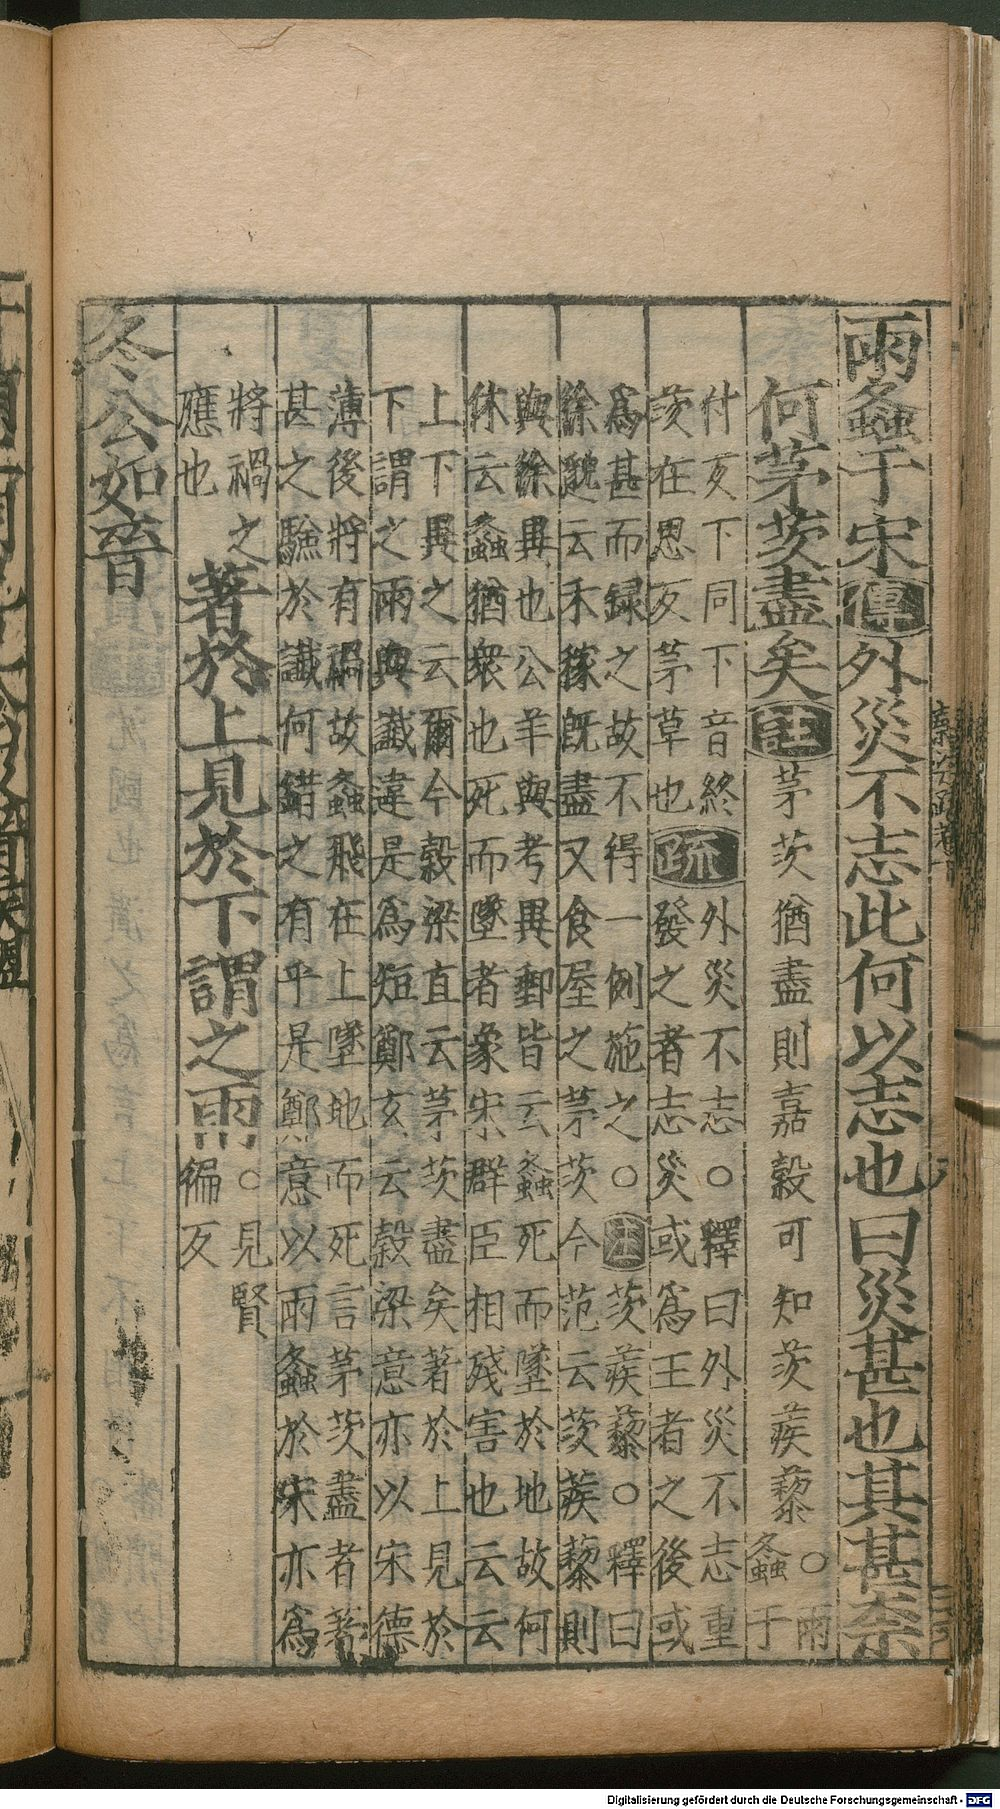 雨螽于宋傳外災不志此何以志也曰災甚也其甚柰
何茅茨盡矣註茅茨猶盡則嘉穀可知茨蒺藜○雨
螽于
付亥下同下音終外災不志○釋曰外災不志重
茨在思亥茅草也疏發之者志災或爲王者之後或
爲甚而録之故不得一例施之○注茨蒺藜○釋曰
徐邈云禾稼既盡又食屋之茅茨今范云茨蒺藜則
與徐異也公羊與考異郵皆云螽死而墜於地故何
休云螽猶衆也死而墜者象宋群臣相殘害也云云
上下異之云爾今穀梁直云茅茨盡矣著於上見於
下謂之雨與讖違是爲短鄭玄云穀梁意亦以宋德
薄後將有禍故螽飛在上墜地而死言茅茨盡者著
甚之驗於讖何錯之有乎是鄭意以雨螽於宋亦爲
將禍之
應也
著於上見於下謂之雨○見賢
徧反
冬公如晉
Digitalisierung gefördert durch die Deutsche Forschungsgemeinschaft - DFG